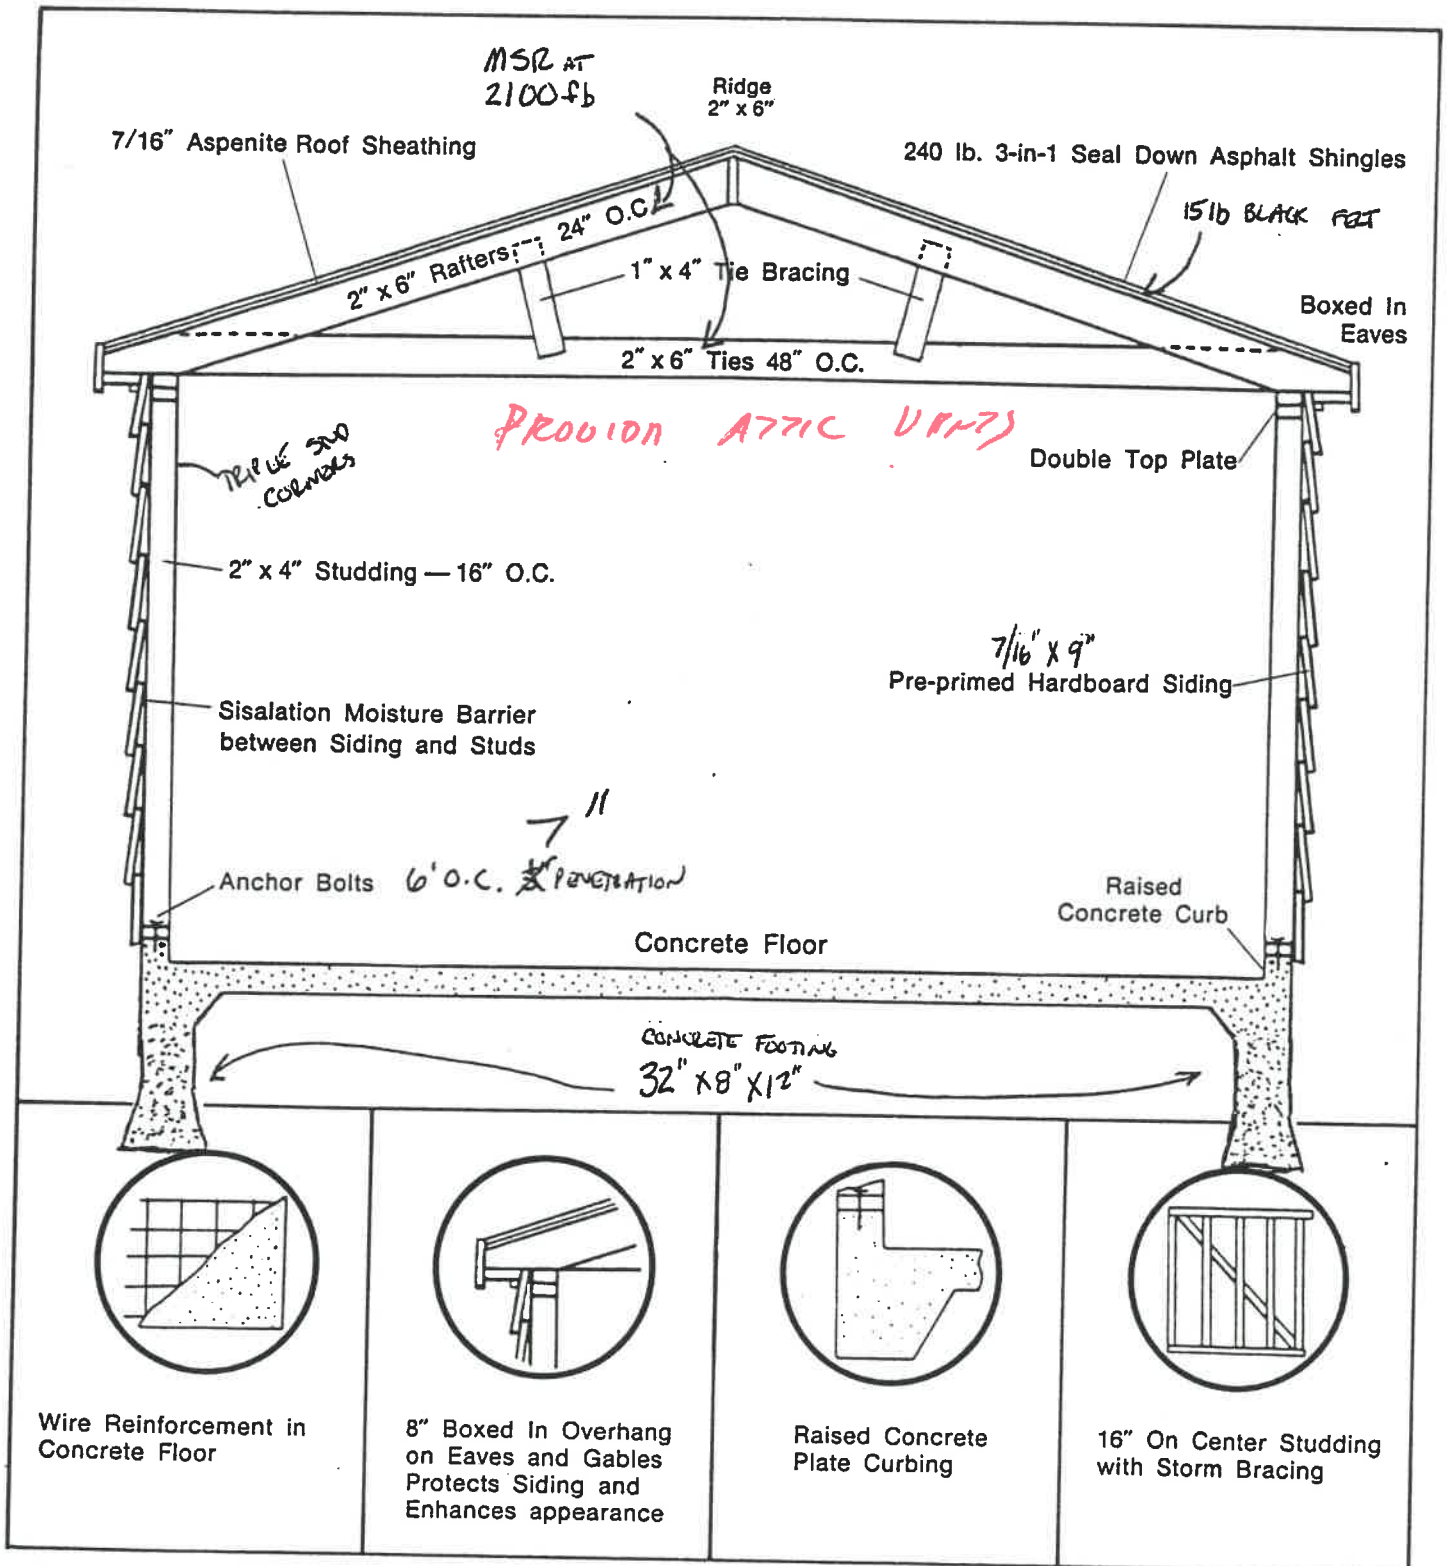 MSR AT
2100 fb
Ridge
2" x 6"
7/16" Aspenite Roof Sheathing
240 lb. 3-in-1 Seal Down Asphalt Shingles
15 lb BLACK FELT
2" x 6" Rafters 24" O.C.
1" x 4" Tie Bracing
Boxed In
Eaves
2" x 6" Ties 48" O.C.
ATTIC VENTS
TRIPLE STUD
CORNERS
Double Top Plate
2" x 4" Studding — 16" O.C.
7/16" X 9"
Pre-primed Hardboard Siding
Sisalation Moisture Barrier
between Siding and Studs
7"
Anchor Bolts 6' O.C. PENETRATION
Raised
Concrete Curb
Concrete Floor
CONCRETE FOOTING
32" X 8" X 12"
Wire Reinforcement in
Concrete Floor
8" Boxed In Overhang
on Eaves and Gables
Protects Siding and
Enhances appearance
Raised Concrete
Plate Curbing
16" On Center Studding
with Storm Bracing